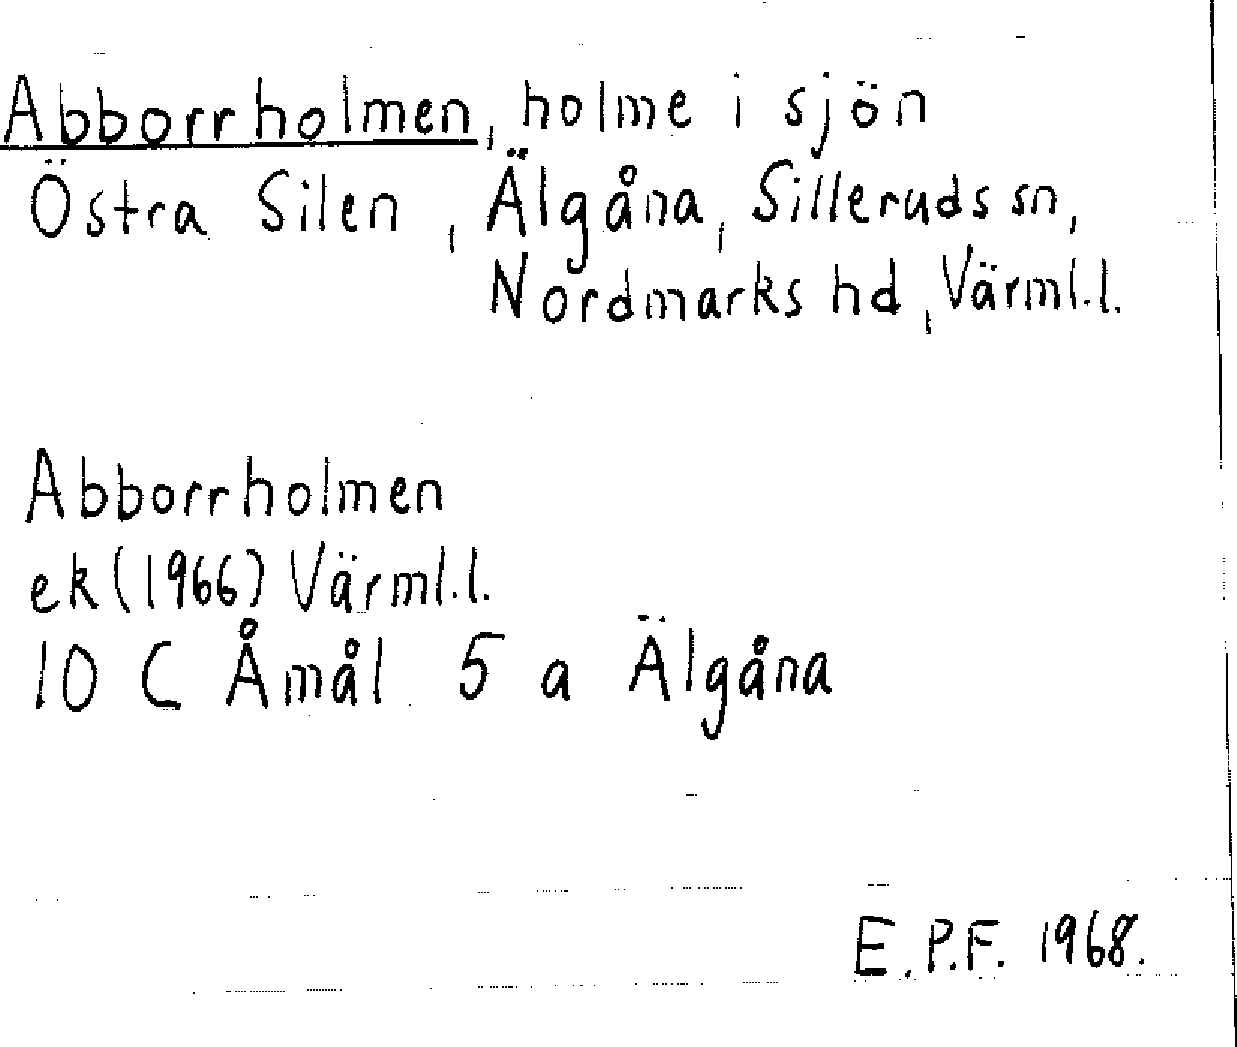 Abborrholmen, holme i sjön
Östra Silen, Älgåna, Silleruds sn,
Nordmarks hd, Värml.l.
Abborrholmen
ek (1966) Värml.l.
10 C Åmål 5 a Älgåna
E.P.F. 1968.